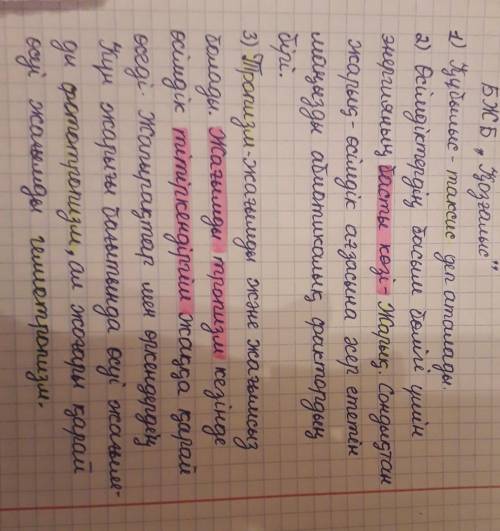 БЖБ "Қозғалыс"
1) Құйылыс - таксис деп аталады.
2) Өсімдіктердің басым бөлігі үшін
энергияның басты көзі - Жарық. Сондықтан
жарық - өсімдік ағзасына әсер ететін
маңызды абиотикалық фактордың
бірі.
3) Тропизм - жағымды және жағымсыз
болады. Жағымды тропизм кезінде
өсімдік тітіркендіргіш жаққа қарай
өседі. Жапырақтар мен өркендердің
Күн жарығы бағытында өсуі жағым-
ды фототропизм, ал жоғары қарай
өсуі жағымды гелиотропизм.